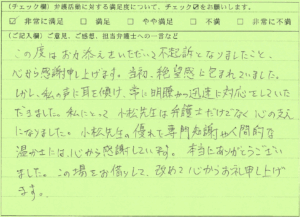 (チェック欄) 弁護活動に対する満足度について、チェック☑をお願いします。
☑ 非常に満足 □ 満足 □ やや満足 □ 不満 □ 非常に不満
(ご記入欄) ご意見、ご感想、担当弁護士への一言など
この度はお力添えをいただいて不起訴となりましたこと、
心から感謝申し上げます。当初、絶望感に包まれていました。
しかし、私の声に耳を傾け、常に明瞭かつ迅速に対応をしていた
だきました。私にとって小松先生は弁護士だけでなく心の支え
になりました。小松先生の優れた専門知識や人間的な
温かさには、心から感謝しています。本当にありがとうござい
ました。この場をお借りして、改めて心からお礼申し上げ
ます。